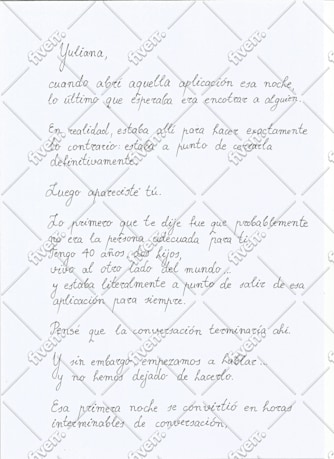 Yuliana,
cuando abrí aquella aplicación esa noche,
lo último que esperaba era encotrar a alguien.
En realidad, estaba allí para hacer exactamente
lo contrario: estaba a punto de cerrarla
definitivamente.
Luego apareciste tú.
Lo primero que te dije fue que probablemente
no era la persona adecuada para ti.
Tengo 40 años, dos hijos,
vivo al otro lado del mundo...
y estaba literalmente a punto de salir de esa
aplicación para siempre.
Pensé que la conversación terminaría ahí.
Y sin embargo, empezamos a hablar...
y no hemos dejado de hacerlo.
Esa primera noche se convirtió en horas
interminables de conversación.
fiverr.